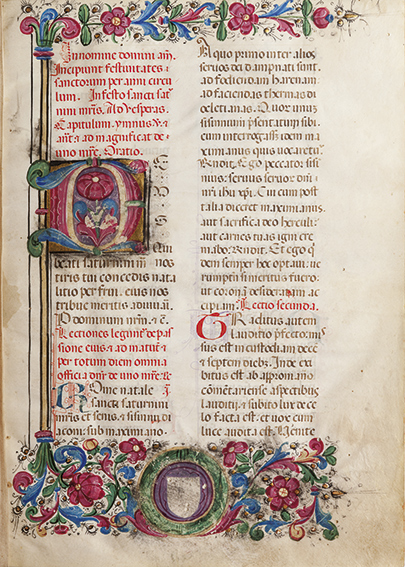 Innomine domini am̄.
Incipiunt festiuitates
sanctorum per anni circu
lum. Infesto sancti sat̄
nini mr̄is. Ad vesperas.
Capitulum. ymnus ⁊ a
ant̄ ⁊ ad magnificat de
uno mr̄e. Oratio.
D
E
V
S
Qui
beati saturnini m̄ nos
tiris tui concedis nata
litio per frui. eius nos
tribue meritis adiuua.
P dominum nr̄m. ⁊ c̄.
Lectiones legunt̄ de pa
ssione eius ⁊ ad matut̄ ⁊
per totum diem omnia
officia dn̄r de uno mr̄e.
Rome natale
sancti saturnini
mr̄is et senis. ⁊ sisinnij di
aconi. sub maximiano.
A quo primo inter alios
seruos dei dampnati sunt
ad fodiendam harenam
ad faciendas thermas di
ocletianas. Quor unus
sisinnium presentatum sibi.
cum interrogass idem ma
ximianus quis uocaretur
Rn̄dit. Ego peccator sisi
nnius: seruus seruor dn̄i
ih̄u xp̄i. Cui cum post
talia diceret maximianus.
aut sacrifica deo herculi:
aut carnes tuas igni cre
mabo. Rn̄dit. Et ego q
dem semper hoc optaui. ut
rumptū simeritus fuero
ut coronā desideratam ac
cipiam. Lectio secunda.
Traditus autem
lauditio prefecto mi
ssus est incustodiam dece
⁊ septem diebz. Inde ex
hibitus est ab appronianō
cōmētariense aspectibus
lauditij. ⁊ subito lux de ce
lo facta est: et uox cum
luce audita est. Venite